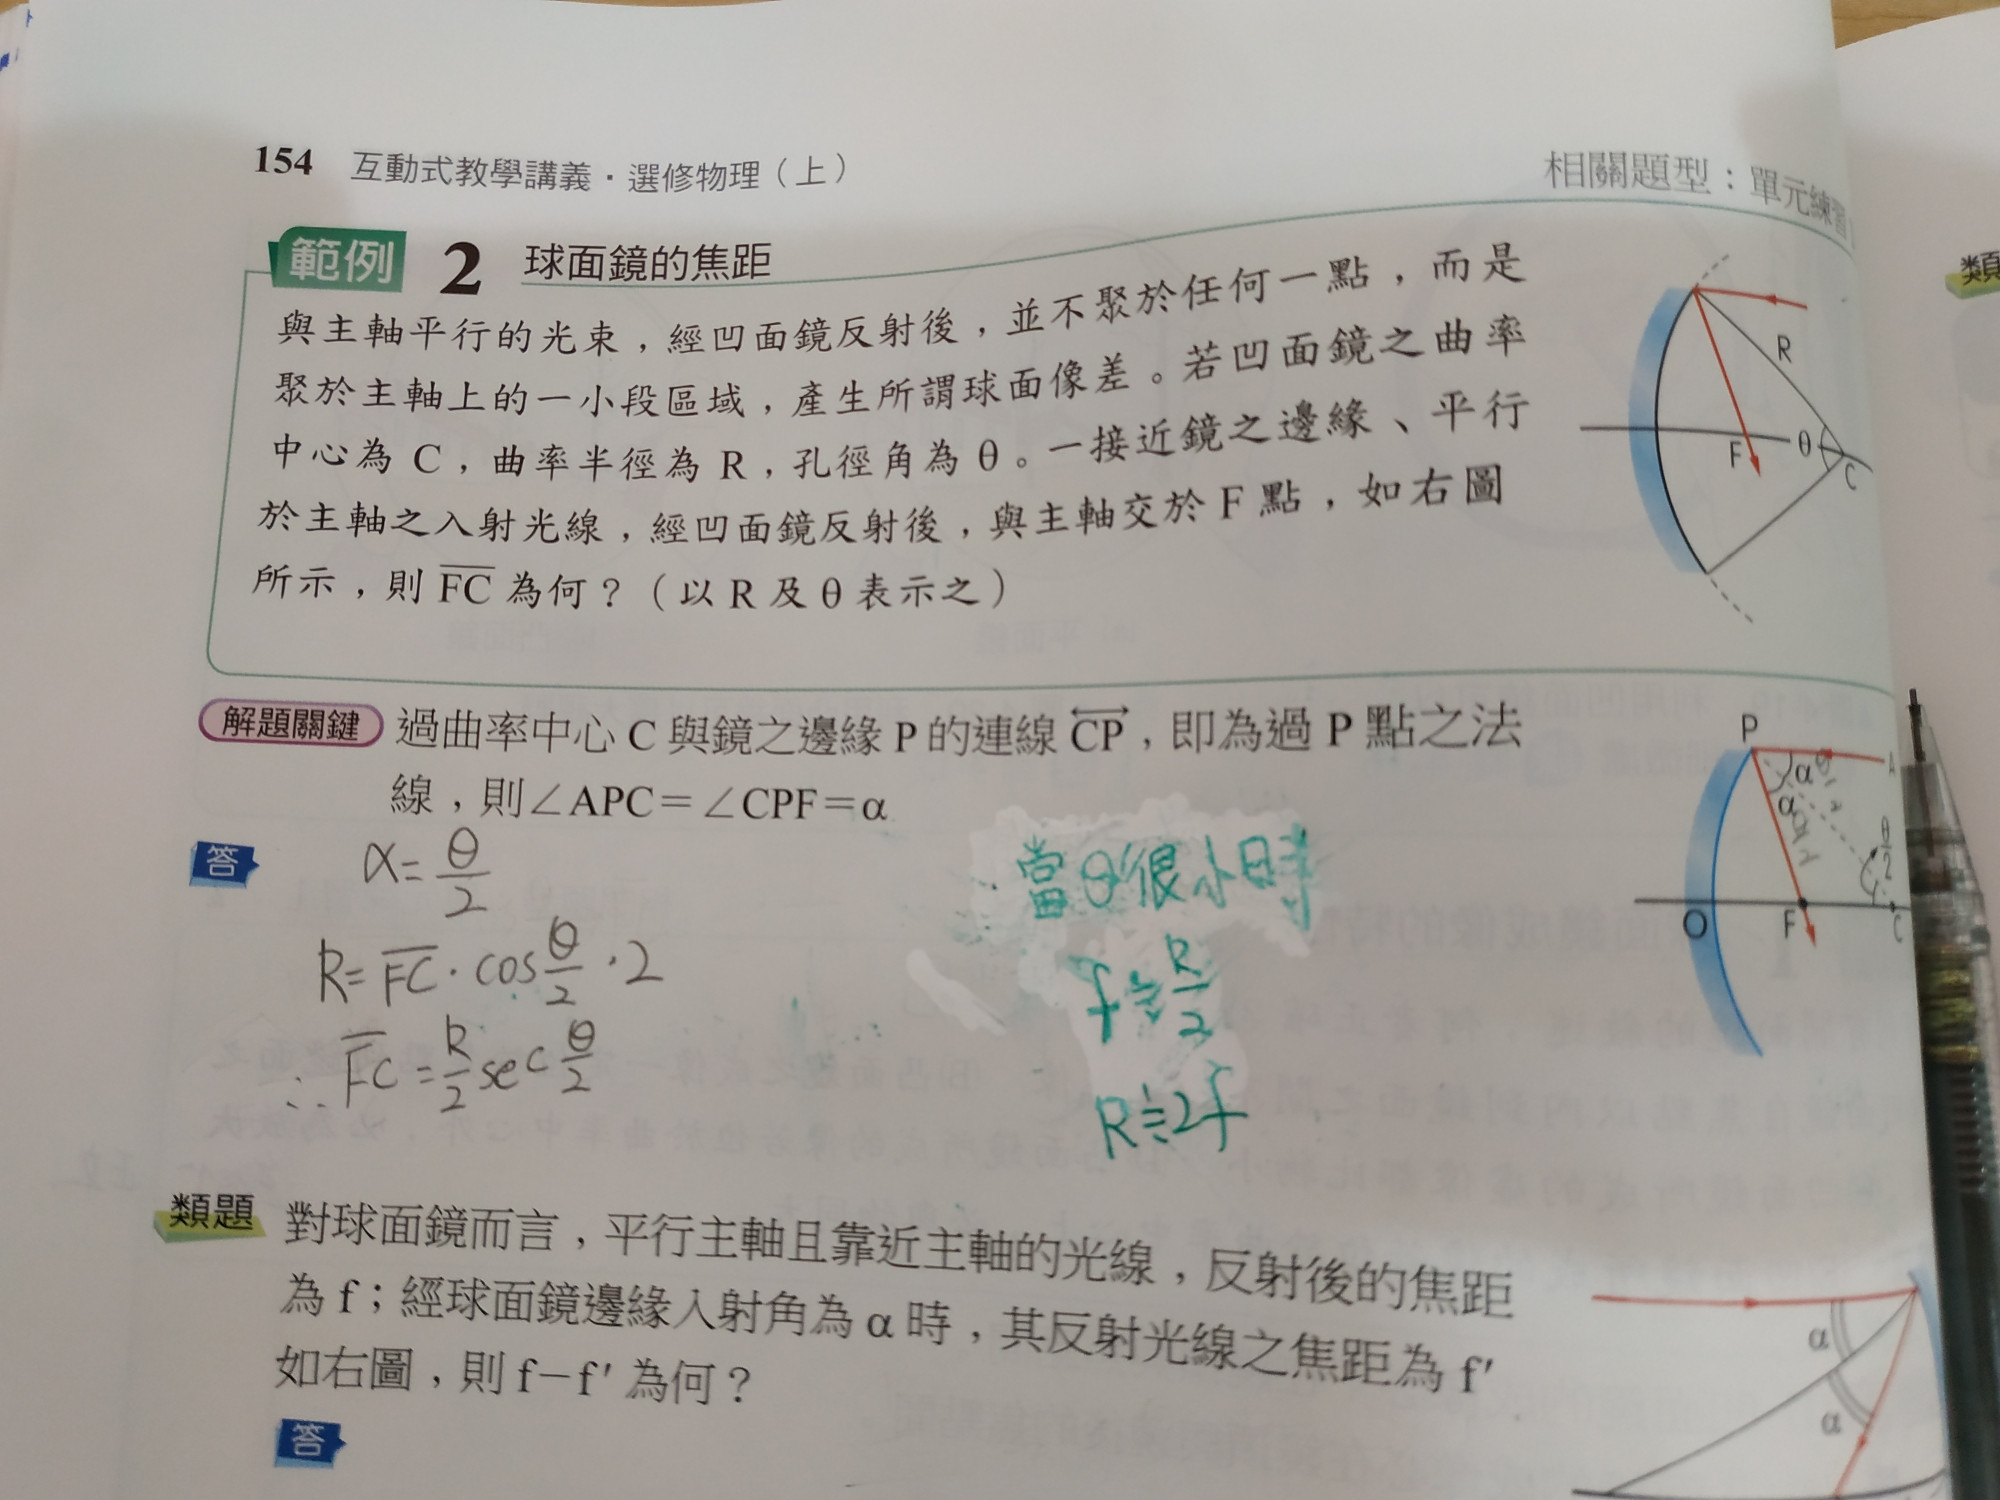 154 互動式教學講義·選修物理（上）
相關題型：單元練習
範例 2 球面鏡的焦距
與主軸平行的光束，經凹面鏡反射後，並不聚於任何一點，而是
聚於主軸上的一小段區域，產生所謂球面像差。若凹面鏡之曲率
中心為 C，曲率半徑為 R，孔徑角為 θ。一接近鏡之邊緣、平行
於主軸之入射光線，經凹面鏡反射後，與主軸交於 F 點，如右圖
所示，則 F̅C̅ 為何？（以 R 及 θ 表示之）
R
F
θ
C
解題關鍵 過曲率中心 C 與鏡之邊緣 P 的連線 CP，即為過 P 點之法
線，則∠APC＝∠CPF＝α
P
A
α
α
θ/2
O
F
C
答
α=θ/2
R=F̅C̅·cosθ/2·2
∴F̅C̅=R/2 secθ/2
當θ很小時
f≒R/2
R≒2f
類題 對球面鏡而言，平行主軸且靠近主軸的光線，反射後的焦距
為 f；經球面鏡邊緣入射角為 α 時，其反射光線之焦距為 f′
如右圖，則 f－f′ 為何？
α
α
答
類